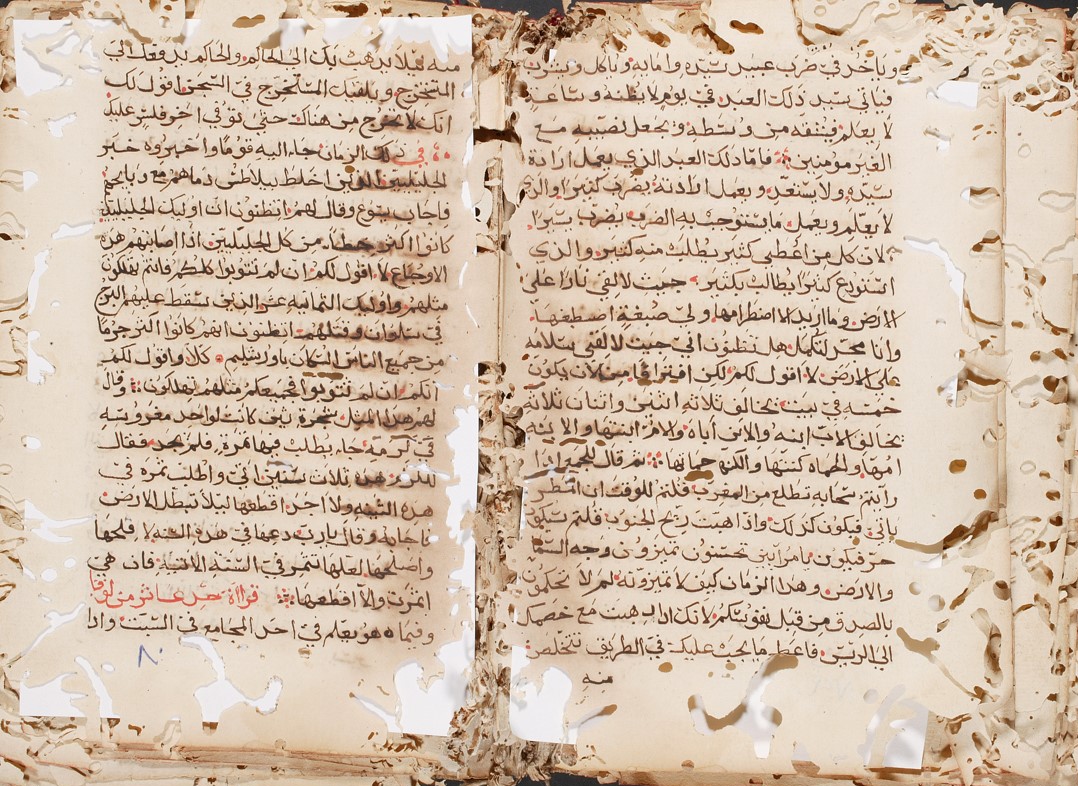 وياخذ في ضرب عبيد سيده وامايه وياكل ويشرب
فياتي سيد ذلك العبد في يوم لا يظنه وساعه
لا يعلم فيشقه من وسطه ويجعل نصيبه مع
الغير مومنين فاما ذلك العبد الذي يعلم ارادة
سيده ولا يستعد ويعمل ارادته يضرب كثيرا والذي
لا يعلم ويعمل ما يستوجب به الضرب يضرب يسيرا
لان كل من اعطي كثير يطلب منه كثير والذي
استودع كثيرا يطالب بكثير جيت لالقي نارا على
الارض وما اريد الا اضطرامها ولي صبغه اصطبغها
وانا مجد لتكمل هل تظنون اني جيت لالقي سلامه
على الارض لا اقول لكم لكن افتراقا من الان يكون
خمسه في بيت يخالف ثلاثه اثنين واثنان ثلاثه
يخالف الاب ابنه والابن اباه والام ابنتها والابنه
امها والحماه كنتها والكنه حماتها ثم قال للجميع اذا
رايتم سحابه تطلع من المغرب قلتم للوقت ان المطر
ياتي فيكون كذلك واذا هبت ريح الجنوب قلتم سيكون
حر فيكون يا مرايين تحسنون تميزون وجه السما
والارض وهذا الزمان كيف لا تميزونه لم لا تحكمون
بالصدق من قبل نفوسكم لانك اذا ذهبت مع خصمك
الى الريس فاعط ما يجب عليك في الطريق تتخلص
منه
منه ليلا يذهب بك الى الحاكم والحاكم يدفعك الى
المستخرج ويلقيك المستخرج في السجن اقول لك
انك لا تخرج من هناك حتى توفي اخر فلس عليك
في ذلك الزمان جا اليه قوم واخبروه خبر
الجليليين الذين اخلط بيلاطس دماهم مع دبايحهم
فاجاب يسوع وقال لهم اتظنون ان اوليك الجليليين
كانوا اكثر خطا من كل الجليليين اذا اصابتهم هذه
الاوجاع لا اقول لكم ان لم تتوبوا كلكم فانتم تهلكون
مثلهم واوليك الثمانيه عشر الذين سقط عليهم البرج
في سلوان وقتلهم اتظنون انهم كانوا اكثر جرما
من جميع الناس السكان باورشليم كلا واقول لكم
انكم ان لم تتوبوا فجميعكم مثلهم يهلكون وقال
لهم هذا المثل شجرة تين كانت لواحد مغروسه
في كرمه جاء يطلب فيها ثمره فلم يجد فقال
للكرام هذه ثلاث سنين اتي واطلب ثمره في
هذه التينه ولا اجد اقطعها ليلا تبطل الارض
فاجابه وقال يا رب دعها في هذه السنه لافلحها
واصلحها لعلها تثمر في السنه الاتيه فان هي
اثمرت والا اقطعها قراة عشر من لوقا
وفيما هو يعلم في احد المجامع في السبت واذا
٨٠